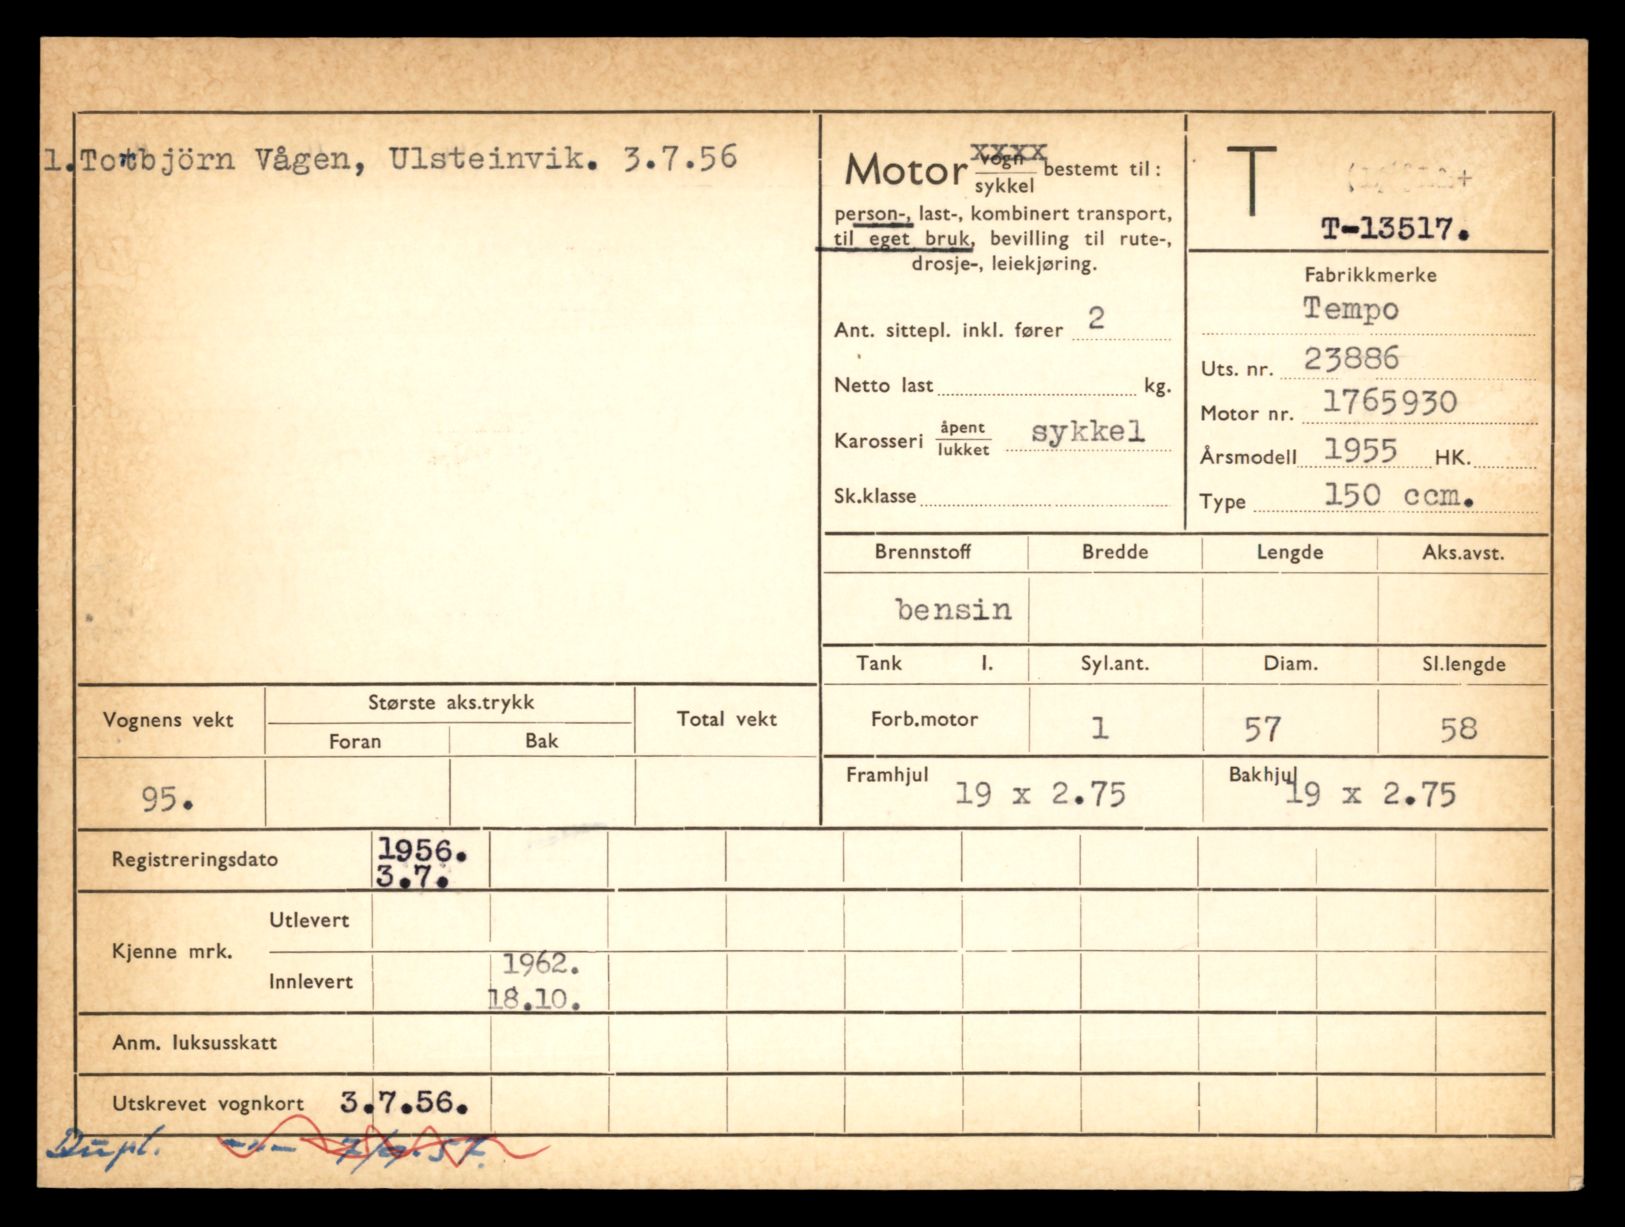 1. Torbjörn Vågen, Ulsteinvik. 3.7.56
Motor vogn/sykkel bestemt til:
person-, last-, kombinert transport,
til eget bruk, bevilling til rute-,
drosje-, leiekjøring.
Ant. sittepl. inkl. fører 2
Netto last kg.
Karosseri åpent/lukket sykkel
Sk.klasse
T
T-13517.
Fabrikkmerke
Tempo
Uts. nr. 23886
Motor nr. 1765930
Årsmodell 1955 HK.
Type 150 ccm.
Brennstoff Bredde Lengde Aks.avst.
bensin
Tank l. Syl.ant. Diam. Sl.lengde
Forb.motor 1 57 58
Framhjul 19 x 2.75 Bakhjul 19 x 2.75
Vognens vekt Største aks.trykk Total vekt
Foran Bak
95.
Registreringsdato 1956.
3.7.
Kjenne mrk.
Utlevert
Innlevert 1962.
18.10.
Anm. luksusskatt
Utskrevet vognkort 3.7.56.
Dupl. -"-